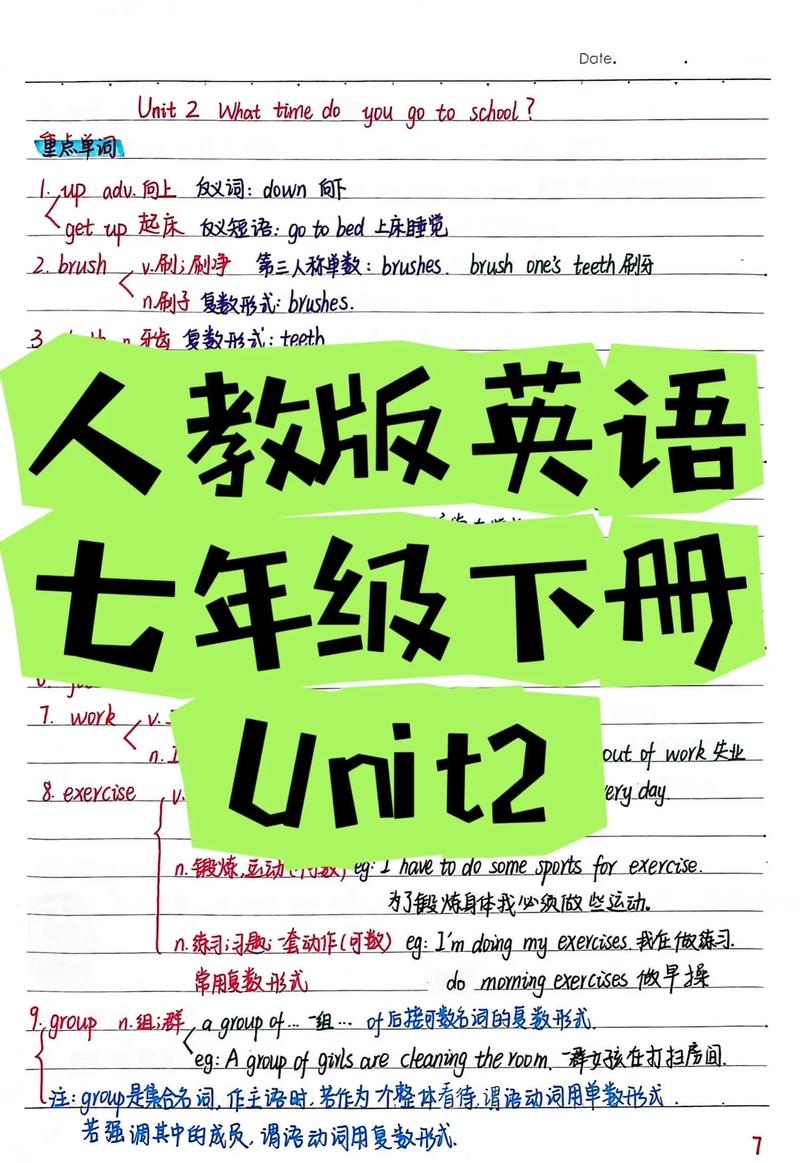 Date.
Unit 2 What time do you go to school?
重点单词
1. up adv. 向上 反义词: down 向下
get up 起床 反义短语: go to bed 上床睡觉
2. brush v.刷;刷净 第三人称单数: brushes. brush one's teeth 刷牙
n.刷子 复数形式: brushes.
3. n 牙齿 复数形式: teeth
人教版英语
七年级下册
Unit2
7. work v.
n. out of work 失业
8. exercise v. every day.
n.锻炼,运动(不可数) eg: I have to do some sports for exercise.
为了锻炼身体我必须做些运动。
n.练习;习题;一套动作(可数) eg: I'm doing my exercises. 我在做练习.
常用复数形式 do morning exercises 做早操
9. group n.组;群 a group of... 一组... of后接可数名词的复数形式.
eg: A group of girls are cleaning the room. 一群女孩在打扫房间.
注: group是集合名词,作主语时,若作为一个整体看待,谓语动词用单数形式.
若强调其中的成员,谓语动词用复数形式.
7